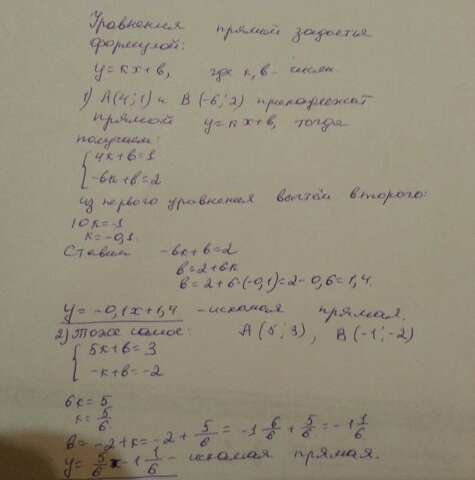 Уравнения прямой задается
формулой:
y = kx+b, где k, b - числа
1) A(4; 1) и B(-6; 2) принадлежат
прямой y = kx+b, тогда
получаем:
{4k+b=1
-6k+b=2
из первого уравнения вычтем второго:
10k=-1
k=-0,1.
Ставим -6k+b=2
b=2+6k
b=2+6·(-0,1)=2-0,6=1,4.
y=-0,1x+1,4 - искомая прямая.
2) Тоже самое: A(5; 3), B(-1; -2)
{5k+b=3
-k+b=-2
6k=5
k=5/6
b=-2+k=-2+5/6=-1 6/6+5/6=-1 1/6
y=5/6x-1 1/6 - искомая прямая.